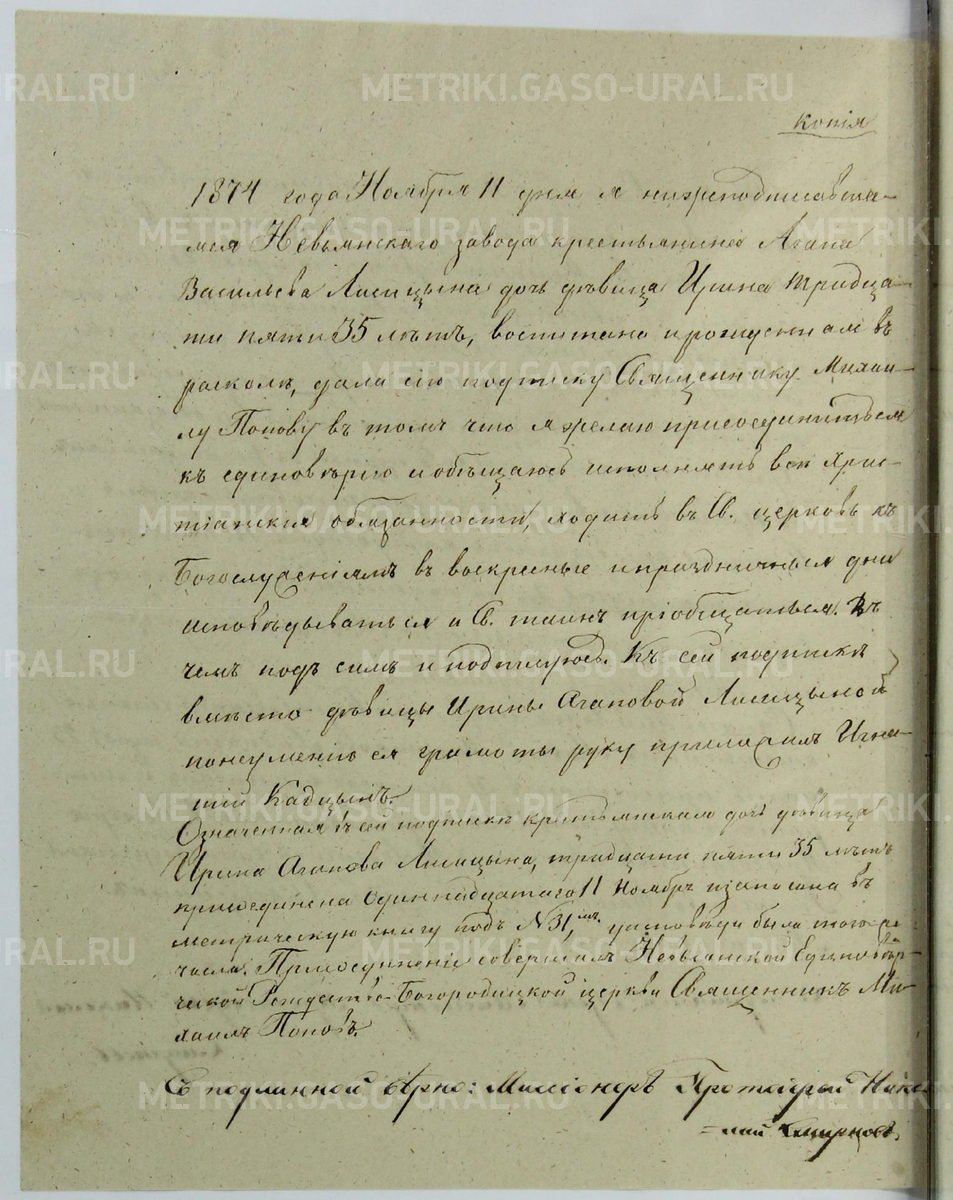 Копія
1874 года Ноября 11 дня я нижеподписавша-
яся Невьянскаго завода крестьянина Агапа
Васильева Лисицына дочь дѣвица Ирина тридца-
ти пяти 35 лѣтъ, воспитана и рождениемъ въ
расколѣ, дала сію подписку Священнику Михаи-
лу Попову въ томъ что я желаю присоединиться
къ единовѣрію и обѣщаюсь исполнять всѣ Хрис-
тіанскія обязанности, ходить въ Св. церковь къ
Богослуженіямъ въ воскресные и праздничныя дни
исповѣдываться и Св. таинъ пріобщаться. Въ
чемъ подъ симъ и подпишуюсь. Къ сей подпискѣ
вмѣсто дѣвицы Ирины Агаповой Лисицыной
по неумѣнію ея грамоты руку приложилъ Игна-
тій Кадцынъ.
Означенная въ сей подпискѣ крестьянская дочь дѣвица
Ирина Агапова Лисицына, тридцати пяти 35 лѣтъ
присоединена одиннадцатаго 11 Ноября и записана въ
метрическую книгу подъ №31,мъ у исповѣди была того же
числа. Присоединеніе совершалъ Невьянской Единовѣр-
ческой Рождество-Богородицкой церкви Священникъ Ми-
хаилъ Поповъ.
Съ подлинной вѣрно: Миссіонеръ Протоіерей
METRIKI.GASO-URAL.RU